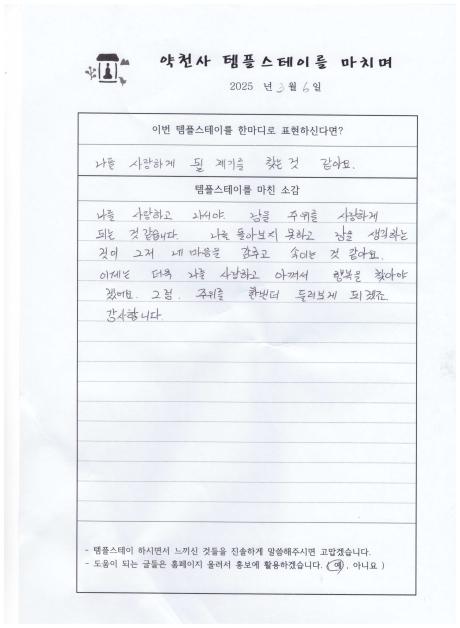 약천사 템플스테이를 마치며
2025 년 3 월 6 일
이번 템플스테이를 한마디로 표현하신다면?
나를 사랑하게 될 계기를 찾는 것 같아요.
템플스테이를 마친 소감
나를 사랑하고 나서야. 남을 주위를 사랑하게
되는 것 같습니다. 나를 돌아보지 못하고 남을 생각하는
것이 그저 내 마음을 감추고 속이는 것 같아요.
이제는 더욱 나를 사랑하고 아껴서 행복을 찾아야
겠어요. 그럼, 주위를 한번더 둘러보게 되겠죠.
감사합니다.
- 템플스테이 하시면서 느끼신 것들을 진솔하게 말씀해주시면 고맙겠습니다.
- 도움이 되는 글들은 홈페이지 올려서 홍보에 활용하겠습니다. ( 예, 아니요 )